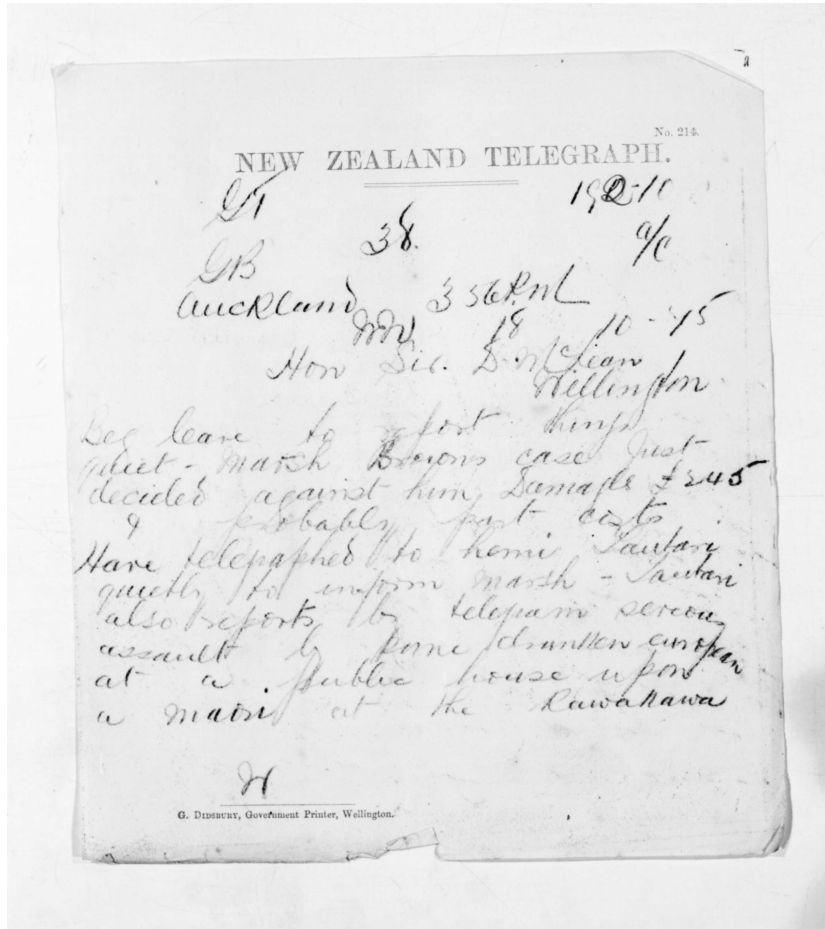 No. 214.
NEW ZEALAND TELEGRAPH.
GT
38.
a/c
GB
Auckland 3 56 P.M.
Nov 18 10 - 75
Hon Sir. D. McLean
Wellington
Beg leave to report things
quiet - Marsh Browns case just
decided against him Damages £245
& probably past costs
Have telegraphed to hemi Tautari
quietly to inform Marsh - Tautari
also reports by telegram serious
assault by some drunken european
at a public house upon
a maori at the Kawakawa
G. DIDSBURY, Government Printer, Wellington.